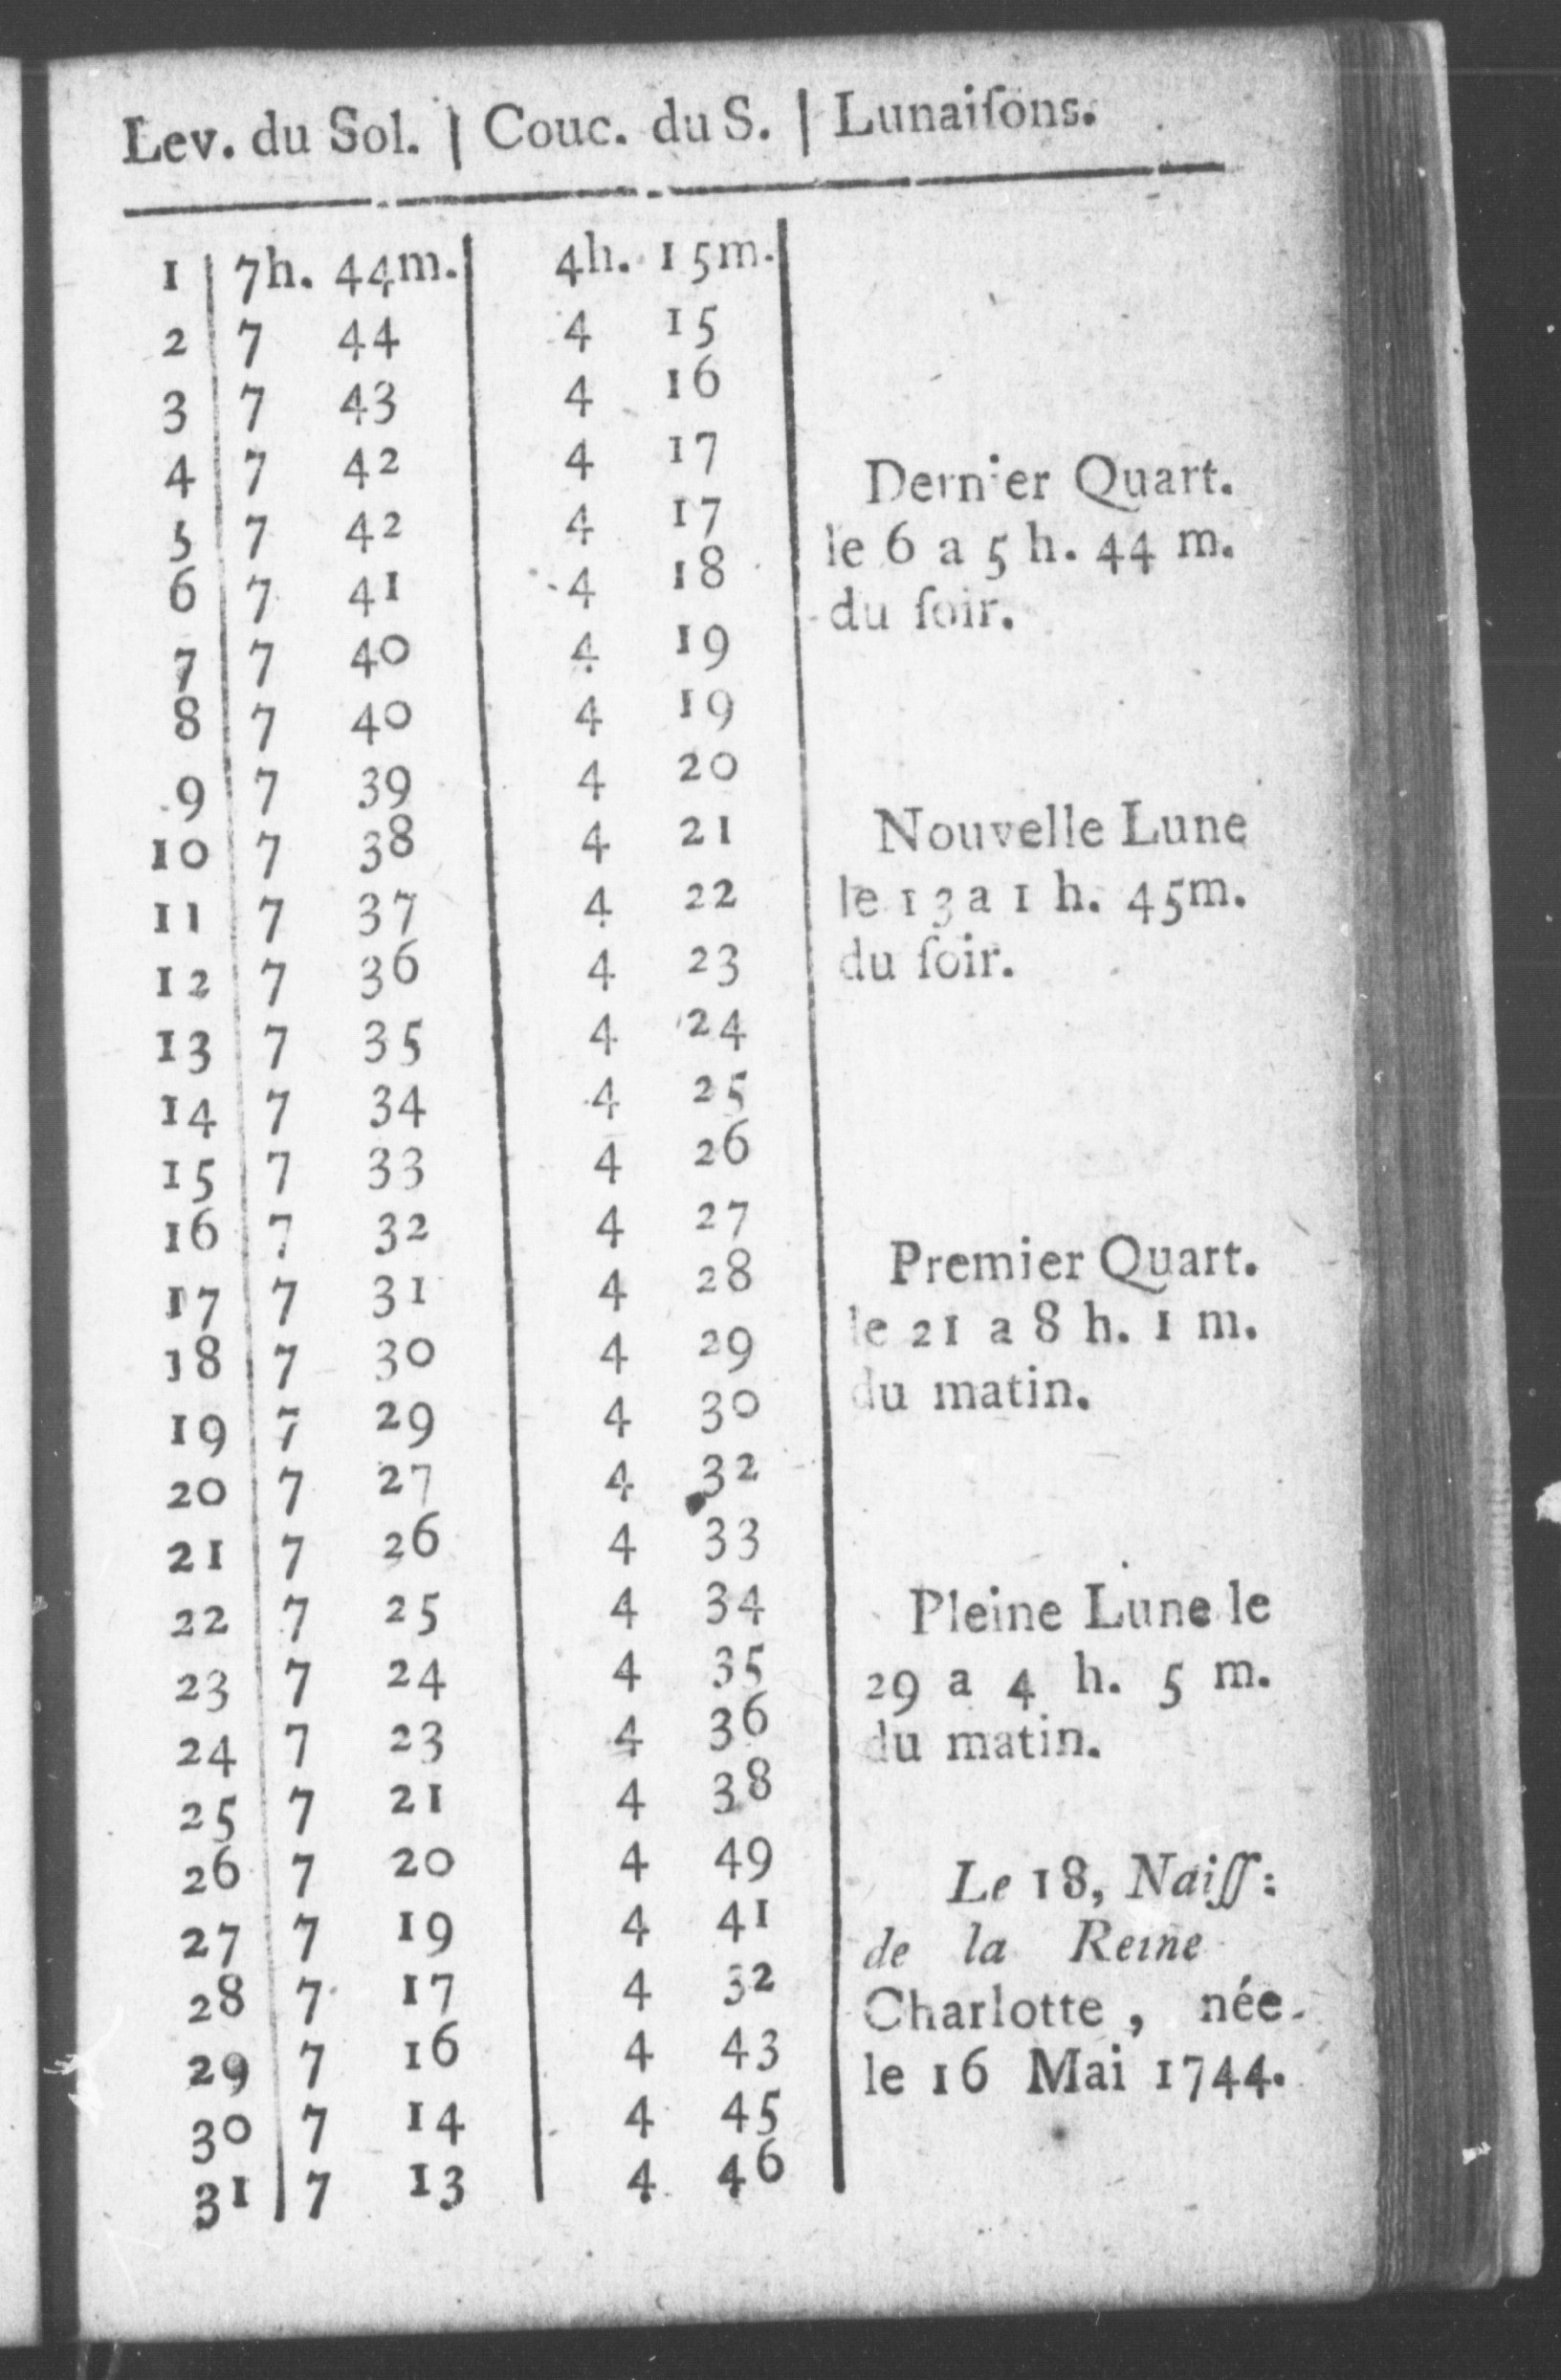 Lev. du Sol. | Couc. du S. | Lunaiſons.
1 | 7h. 44m. | 4h. 15m. |
2 | 7 44 | 4 15 |
3 | 7 43 | 4 16 |
4 | 7 42 | 4 17 | Dernier Quart.
5 | 7 42 | 4 17 | le 6 a 5 h. 44 m.
6 | 7 41 | 4 18 | du ſoir.
7 | 7 40 | 4 19 |
8 | 7 40 | 4 19 |
9 | 7 39 | 4 20 |
10 | 7 38 | 4 21 | Nouvelle Lune
11 | 7 37 | 4 22 | le 13 a 1 h. 45m.
12 | 7 36 | 4 23 | du ſoir.
13 | 7 35 | 4 24 |
14 | 7 34 | 4 25 |
15 | 7 33 | 4 26 |
16 | 7 32 | 4 27 |
17 | 7 31 | 4 28 | Premier Quart.
18 | 7 30 | 4 29 | le 21 a 8 h. 1 m.
19 | 7 29 | 4 30 | du matin.
20 | 7 27 | 4 32 |
21 | 7 26 | 4 33 |
22 | 7 25 | 4 34 | Pleine Lune le
23 | 7 24 | 4 35 | 29 a 4 h. 5 m.
24 | 7 23 | 4 36 | du matin.
25 | 7 21 | 4 38 |
26 | 7 20 | 4 49 | Le 18, Naiſſ:
27 | 7 19 | 4 41 | de la Reine
28 | 7 17 | 4 32 | Charlotte, née
29 | 7 16 | 4 43 | le 16 Mai 1744.
30 | 7 14 | 4 45 |
31 | 7 13 | 4 46 |